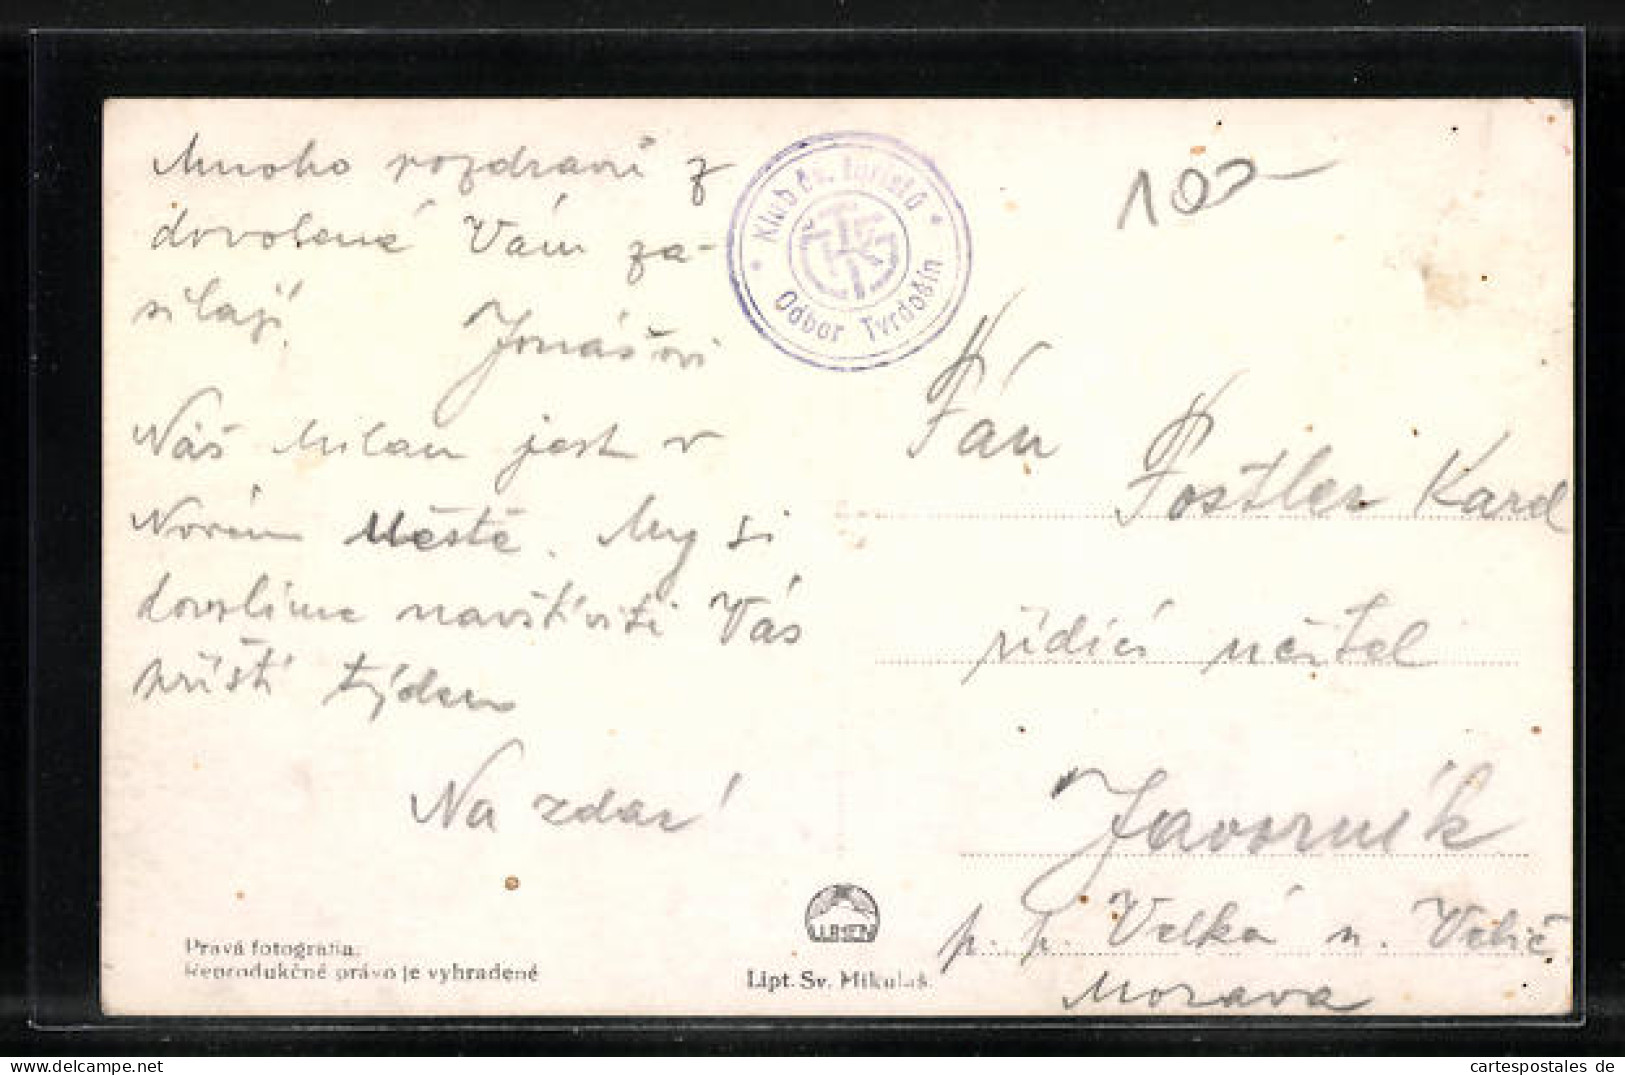 Mnoho pozdravů z
dovolené Vám za-
sílají Jonášovi
Náš Milan jest v
Novém Městě. My si
dovolíme navštíviti Vás
příští týden
Na zdar!
Pravá fotografia.
Reprodukčné právo je vyhradené
Klub čs. turistů
Odbor Tvrdošín
Lipt. Sv. Mikuláš.
Pán
Postler Karel
řídící učitel
Javorník
p. p. Velká n. Velič.
Morava
cartespostales de